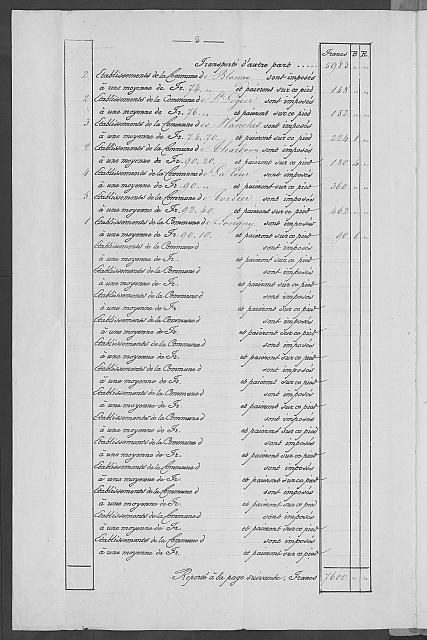 2
Francs B. R.
Transporté d'autre part ..... 5983 " "
2 Etablissements de la Commune de Blonay sont imposés
à une moyenne de Fr. 74. " et paieront sur ce pied 148 " "
2 Etablissements de la Commune de St Légier sont imposés
à une moyenne de Fr. 76. " et paieront sur ce pied 152 " "
3 Etablissements de la Commune des Planches sont imposés
à une moyenne de Fr. 74, 70, et paieront sur ce pied 224 " "
2 Etablissements de la Commune de Chardonne sont imposés
à une moyenne de Fr. 90, 20, et paieront sur ce pied 180 4 "
4 Etablissements de la Commune de La Tour sont imposés
à une moyenne de Fr. 90 " et paieront sur ce pied 360 " "
5 Etablissements de la Commune de Corsier sont imposés
à une moyenne de Fr. 92, 40, et paieront sur ce pied 462 " "
1 Etablissements de la Commune de sont imposés
à une moyenne de Fr. 90, 10, et paieront sur ce pied 90 "
Etablissements de la Commune d sont imposés
à une moyenne de Fr. et paieront sur ce pied
Etablissements de la Commune d sont imposés
à une moyenne de Fr. et paieront sur ce pied
Etablissements de la Commune d sont imposés
à une moyenne de Fr. et paieront sur ce pied
Etablissements de la Commune d sont imposés
à une moyenne de Fr. et paieront sur ce pied
Etablissements de la Commune d sont imposés
à une moyenne de Fr. et paieront sur ce pied
Etablissements de la Commune d sont imposés
à une moyenne de Fr. et paieront sur ce pied
Etablissements de la Commune d sont imposés
à une moyenne de Fr. et paieront sur ce pied
Etablissements de la Commune d sont imposés
à une moyenne de Fr. et paieront sur ce pied
Etablissements de la Commune d sont imposés
à une moyenne de Fr. et paieront sur ce pied
Etablissements de la Commune d sont imposés
à une moyenne de Fr. et paieront sur ce pied
Etablissements de la Commune d sont imposés
à une moyenne de Fr. et paieront sur ce pied
Etablissements de la Commune d sont imposés
à une moyenne de Fr. et paieront sur ce pied
Etablissements de la Commune d sont imposés
à une moyenne de Fr. et paieront sur ce pied
Reporté à la page suivante, Francs 7600 " "